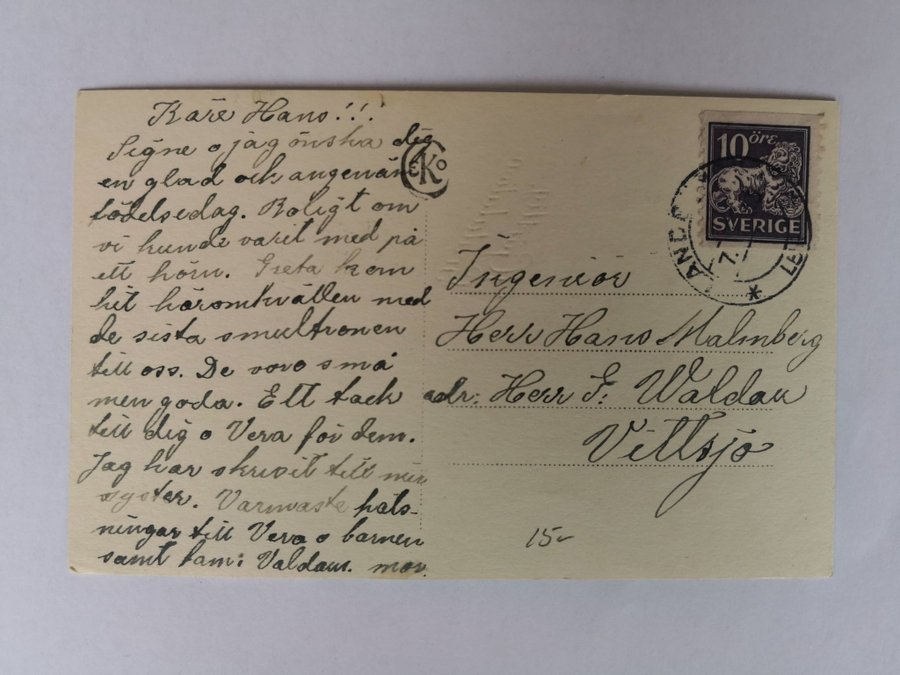 Käre Hans!!!
Signe o jag önska dig
en glad och angenäm
födelsedag. Roligt om
vi kunde varit med på
ett hörn. Greta kom
hit häromkvällen med
de sista smultronen
till oss. De voro små
men goda. Ett tack
till dig o Vera för dem.
Jag har skrivit till min
syster. Varmaste häls-
ningar till Vera o barnen
samt fam: Valdau. mor.
EKO
10 ÖRE
SVERIGE
LAND
7.
LE
*
Ingeniör
Herr Hans Malmberg
adr. Herr F. Waldau
Vittsjö
15-